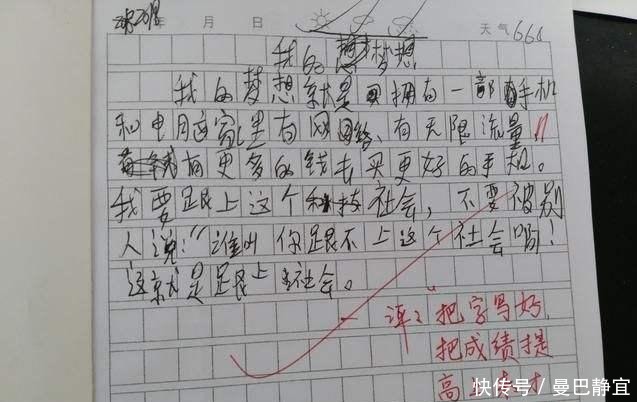 年 月 日 天气666
我的梦想
我的梦想就是拥有一部手机
和电脑家里有网络、有无限流量,
有更多的钱去买更好的手机。
我要跟上这个科技社会，不要被别
人说:“谁叫你跟不上这个社会啊!
这就是跟上社会。
评:把字写好,
把成绩提
高上去才
快传号/曼巴静宜